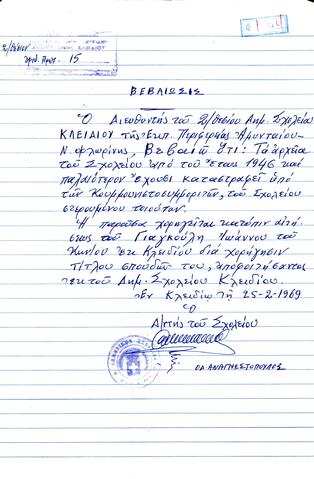 2/θέσιον
ἀριθ. Πρωτ. 15
ΒΕΒΑΙΩΣΙΣ
Ὁ Διευθυντής τοῦ 2/θεσίου Δημ. Σχολείου
ΚΛΕΙΔΙΟΥ τῆς Ἐκπ. Περιφερείας Ἀμυνταίου-
Ν. Φλωρίνης, Βεβαιοῖ ὅτι: Τά ἀρχεῖα
τοῦ Σχολείου ἀπό τοῦ ἔτους 1946 καί
παλαιότερον ἔχουσι καταστραφεῖ ὑπό
τῶν Κουμμουνιστοσυμμοριτῶν, τοῦ Σχολείου
στερουμένου τοιούτων.
Ἡ παροῦσα χορηγεῖται κατόπιν αἰτή
σεως τοῦ Γιαγκούλη Ἰωάννου τοῦ
Κων/νου ἐκ Κλειδίου διά χορήγησιν
τίτλου σπουδῶν του, ἀποφοιτήσαντος
ἐκ τοῦ Δημ. Σχολείου Κλειδίου.
Ἐν Κλειδίῳ τῇ 25-2-1969
Ὁ
Δ/ντής τοῦ Σχολείου
ΟΔ. ΑΝΑΓΝΩΣΤΟΠΟΥΛΟΣ